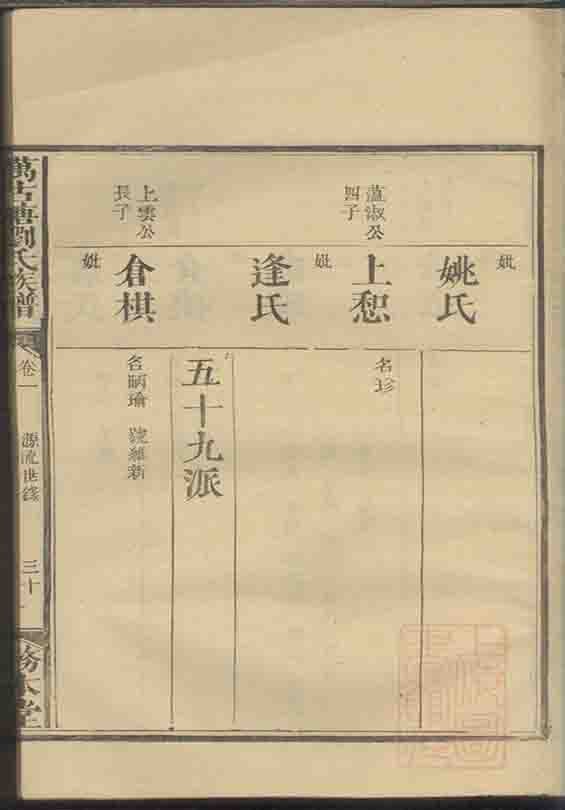 妣
姚氏
蘊淑公
四子
上恕
名珍
妣
逢氏
五十九派
上雲公
長子
倉棋
名炳瑜 號維新
妣
萬古塘劉氏族譜
卷一
源流世錄
三十一
務本堂